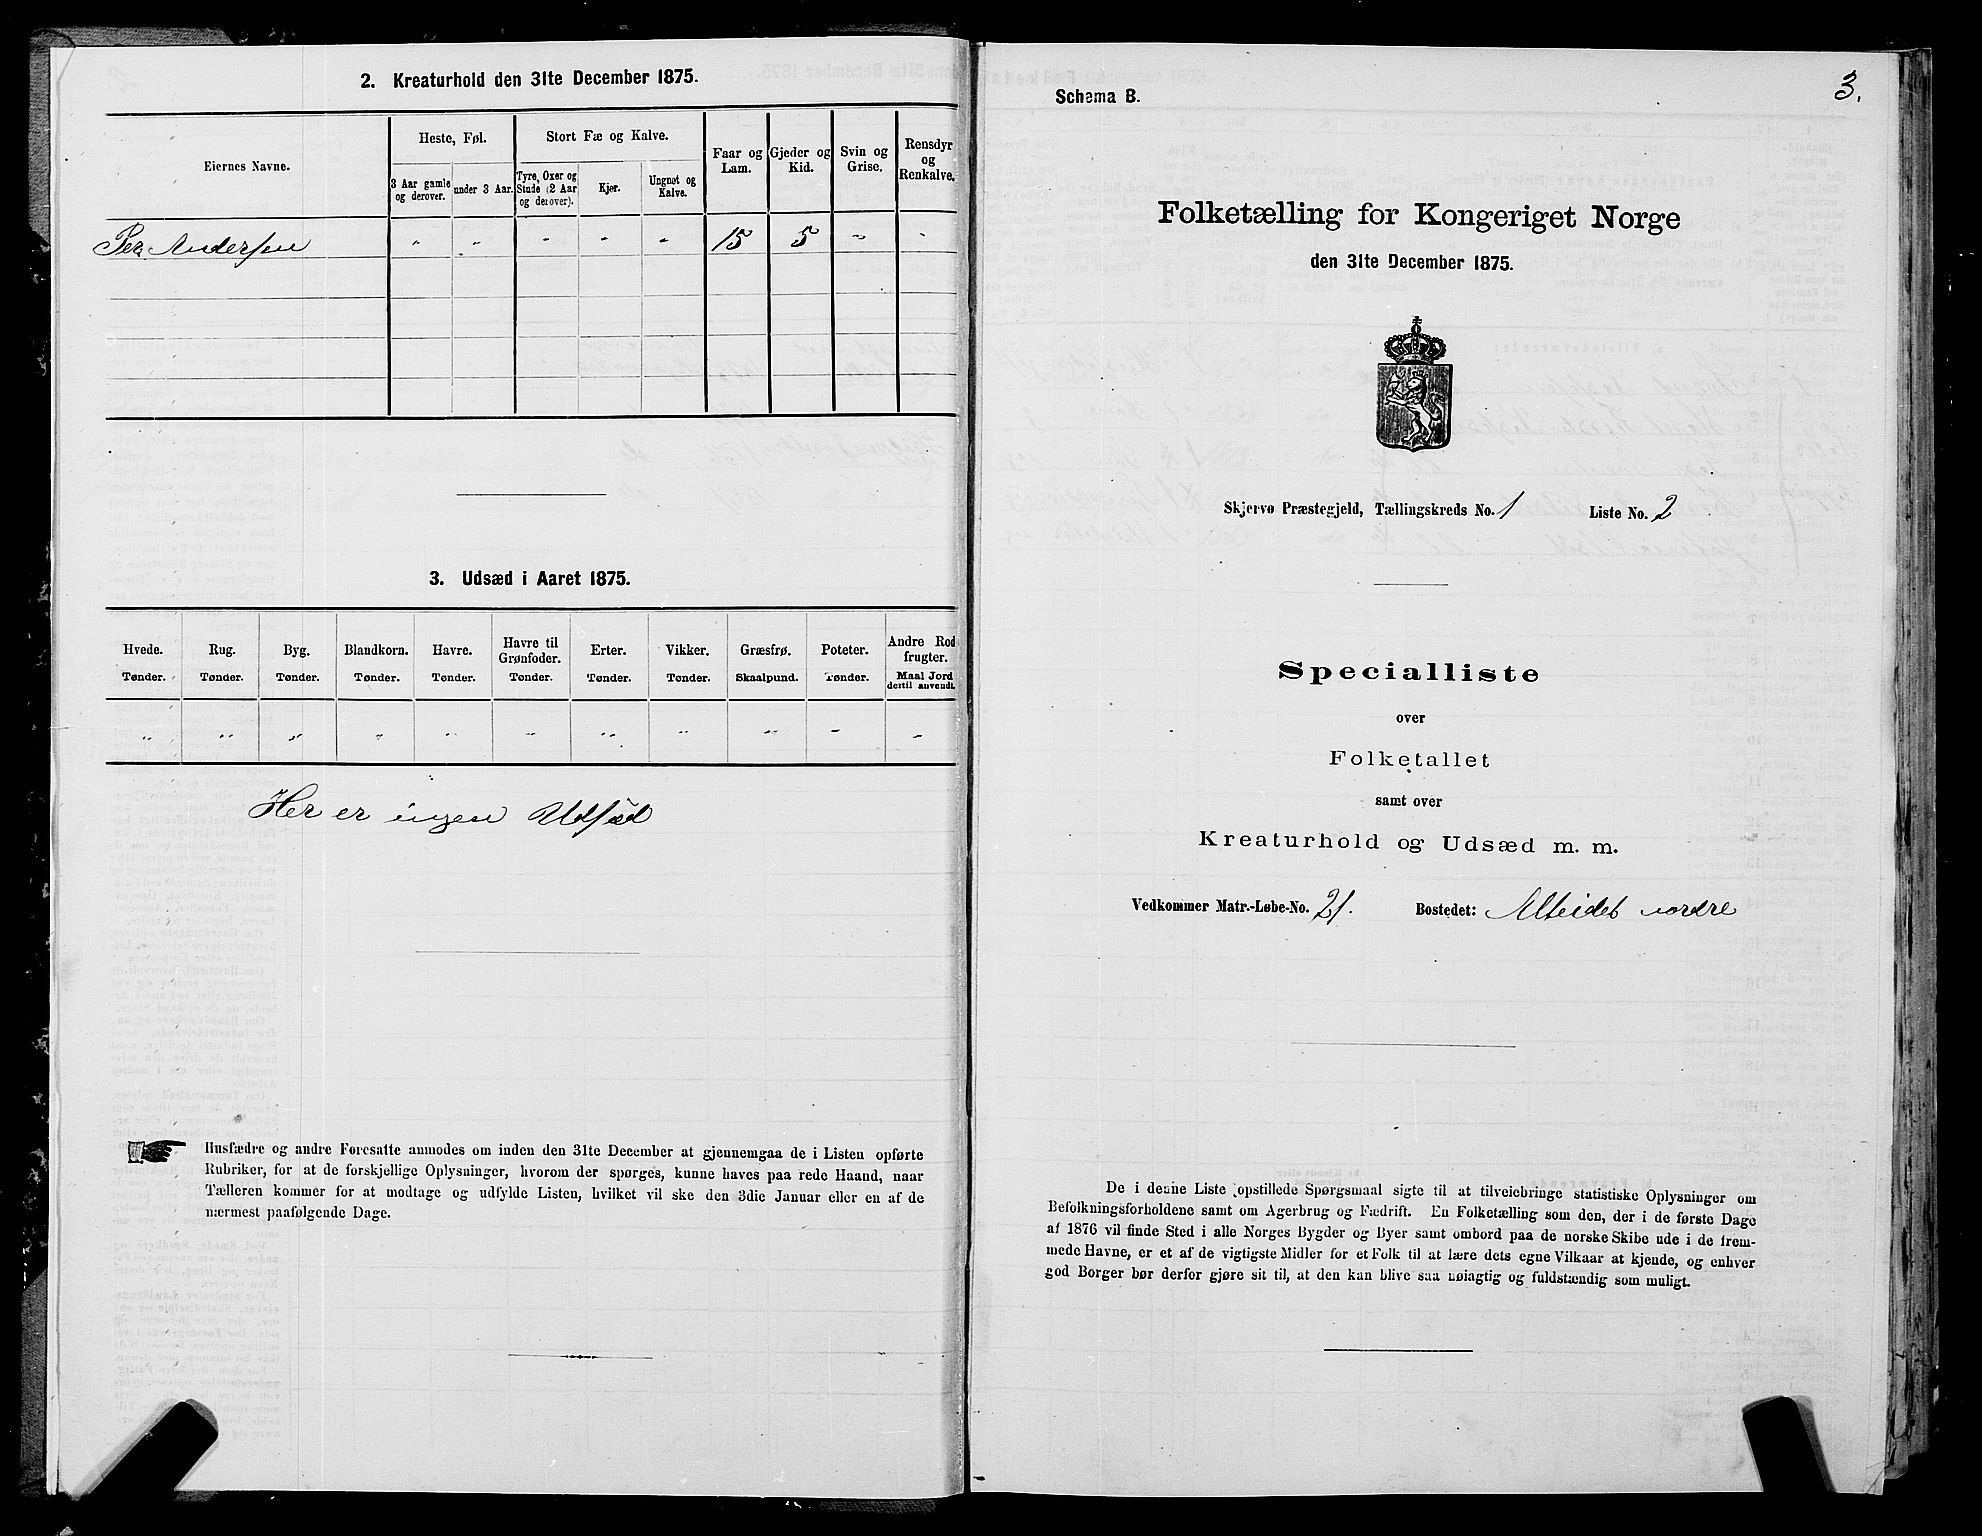 2. Kreaturhold den 31te December 1875.
Eiernes Navne.
Heste, Føl.
Stort Fæ og Kalve.
Faar og Lam.
Gjeder og Kid.
Svin og Grise.
Rensdyr og Renkalve.
3 Aar gamle og derover.
under 3 Aar.
Tyre, Oxer og Stude (2 Aar og derover).
Kjør.
Ungnøt og Kalve.
Per Andersen " " " " " 15 5 " "
3. Udsæd i Aaret 1875.
Hvede. Rug. Byg. Blandkorn. Havre. Havre til Grønfoder. Erter. Vikker. Græsfrø. Poteter. Andre Rodfrugter.
Tønder. Tønder. Tønder. Tønder. Tønder. Tønder. Tønder. Tønder. Skaalpund. Tønder. Maal Jord dertil anvendt.
" " " " " " " " " " "
Her er ingen Udsæd
Husfædre og andre Foresatte anmodes om inden den 31te December at gjennemgaa de i Listen opførte
Rubriker, for at de forskjellige Oplysninger, hvorom der spørges, kunne haves paa rede Haand, naar
Tælleren kommer for at modtage og udfylde Listen, hvilket vil ske den 3die Januar eller en af de
nærmest paafølgende Dage.
3.
Schema B.
Folketælling for Kongeriget Norge
den 31te December 1875.
Skjervø Præstegjeld, Tællingskreds No. 1 Liste No. 2
Specialliste
over
Folketallet
samt over
Kreaturhold og Udsæd m. m.
Vedkommer Matr.-Løbe-No. 21. Bostedet: Alteidet nordre
De i denne Liste opstillede Spørgsmaal sigte til at tilveiebringe statistiske Oplysninger om
Befolkningsforholdene samt om Agerbrug og Fædrift. En Folketælling som den, der i de første Dage
af 1876 vil finde Sted i alle Norges Bygder og Byer samt ombord paa de norske Skibe ude i de frem-
mede Havne, er et af de vigtigste Midler for et Folk til at lære dets egne Vilkaar at kjende, og enhver
god Borger bør derfor gjøre sit til, at den kan blive saa nøiagtig og fuldstændig som muligt.